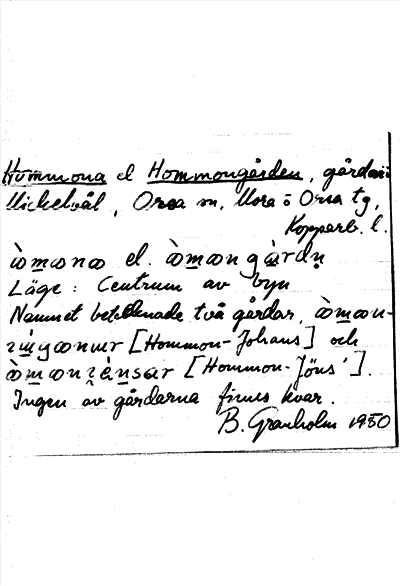 Hommona el Hommongården, gårdar i
Mickelvål, Orsa sn, Mora o Orsa tg,
Kopparb. l.
òmωnω el. òmωngὰrdn̥
Läge: Centrum av byn
Namnet betecknade två gårdar, òmωn-
[Hommon-Johans] och
[Hommon-Jöns'].
Ingen av gårdarna finns kvar.
B. Granholm 1950